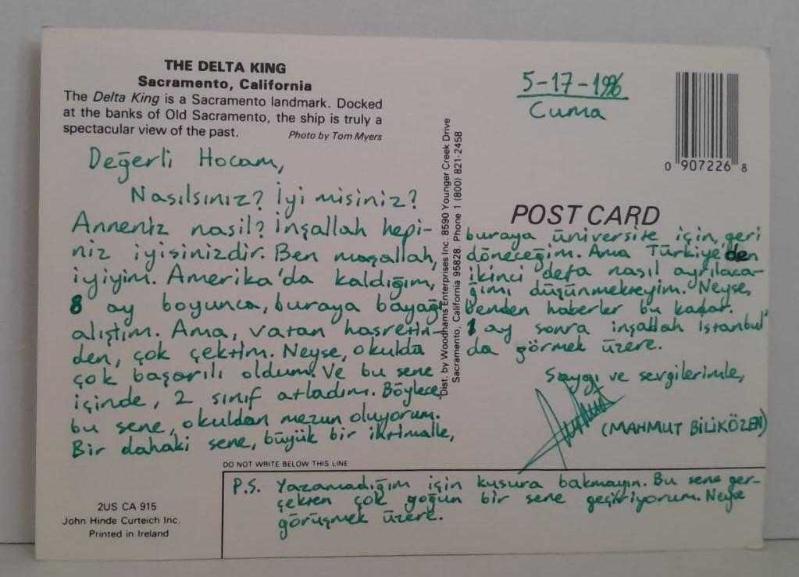 THE DELTA KING
Sacramento, California
The Delta King is a Sacramento landmark. Docked
at the banks of Old Sacramento, the ship is truly a
spectacular view of the past.
Photo by Tom Myers
Değerli Hocam,
Nasılsınız? İyi misiniz?
Anneniz nasıl? İnşallah hepi-
niz iyisinizdir. Ben maşallah,
iyiyim. Amerika'da kaldığım,
8 ay boyunca, buraya bayağı
alıştım. Ama, vatan hasretin-
den, çok çektim. Neyse, okulda
çok başarılı oldum. Ve bu sene
içinde, 2 sınıf atladım. Böylece,
bu sene, okuldan mezun oluyorum.
Bir dahaki sene, büyük bir ihtimalle,
Dist. by Woodhams Enterprises Inc. 8590 Younger Creek Drive
Sacramento, California 95828. Phone 1 (800) 821-2458
5-17-1996
Cuma
0 907226 8
POST CARD
buraya üniversite için, geri
döneceğim. Ama Türkiye'den
ikinci defa nasıl ayrılaca-
ğımı düşünmekteyim. Neyse,
benden haberler bu kadar.
1 ay sonra inşallah İstanbul'
da görmek üzere.
Saygı ve sevgilerimle,
(MAHMUT BİLİKÖZEN)
DO NOT WRITE BELOW THIS LINE
P.S. Yazamadığım için kusura bakmayın. Bu sene ger-
çekten çok yoğun bir sene geçiriyorum. Neyse
görüşmek üzere.
2US CA 915
John Hinde Curteich Inc.
Printed in Ireland